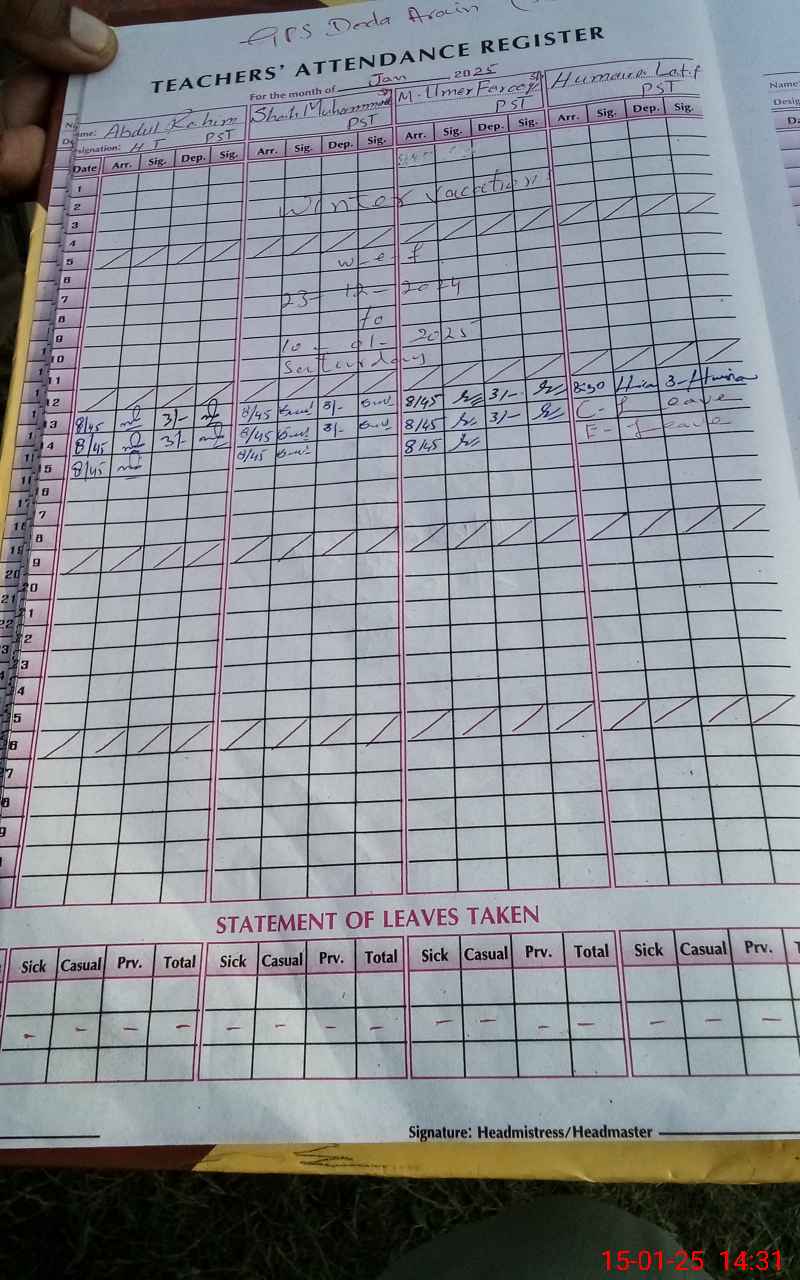 GPS Deda Arain
TEACHERS' ATTENDANCE REGISTER
For the month of Jan 2025
Name: Abdul Rahim Shah Muhammad M. Umer Farooq Humaira Latif
Designation: HT PST PST PST PST
Date Arr. Sig. Dep. Sig. Arr. Sig. Dep. Sig. Arr. Sig. Dep. Sig. Arr. Sig. Dep. Sig.
1
2
Winter vacation
3
4
5
w-e-f
6
7
23-12-2024
8
to
9
10-01-2025
10
Saturday
11
12
13 8/45 3/- 8/45 3/- 8/45 3/- 8:30 3-
14 8/45 3/- 8/45 3/- 8/45 3/- C-Leave
15 8/45 8/45 8/45 E-Leave
16
7
8
9
20
21
22
23
4
5
6
7
8
9
STATEMENT OF LEAVES TAKEN
Sick Casual Prv. Total Sick Casual Prv. Total Sick Casual Prv. Total Sick Casual Prv. T
- - - - - - - - - - - - - - -
Signature: Headmistress/Headmaster
15-01-25 14:31